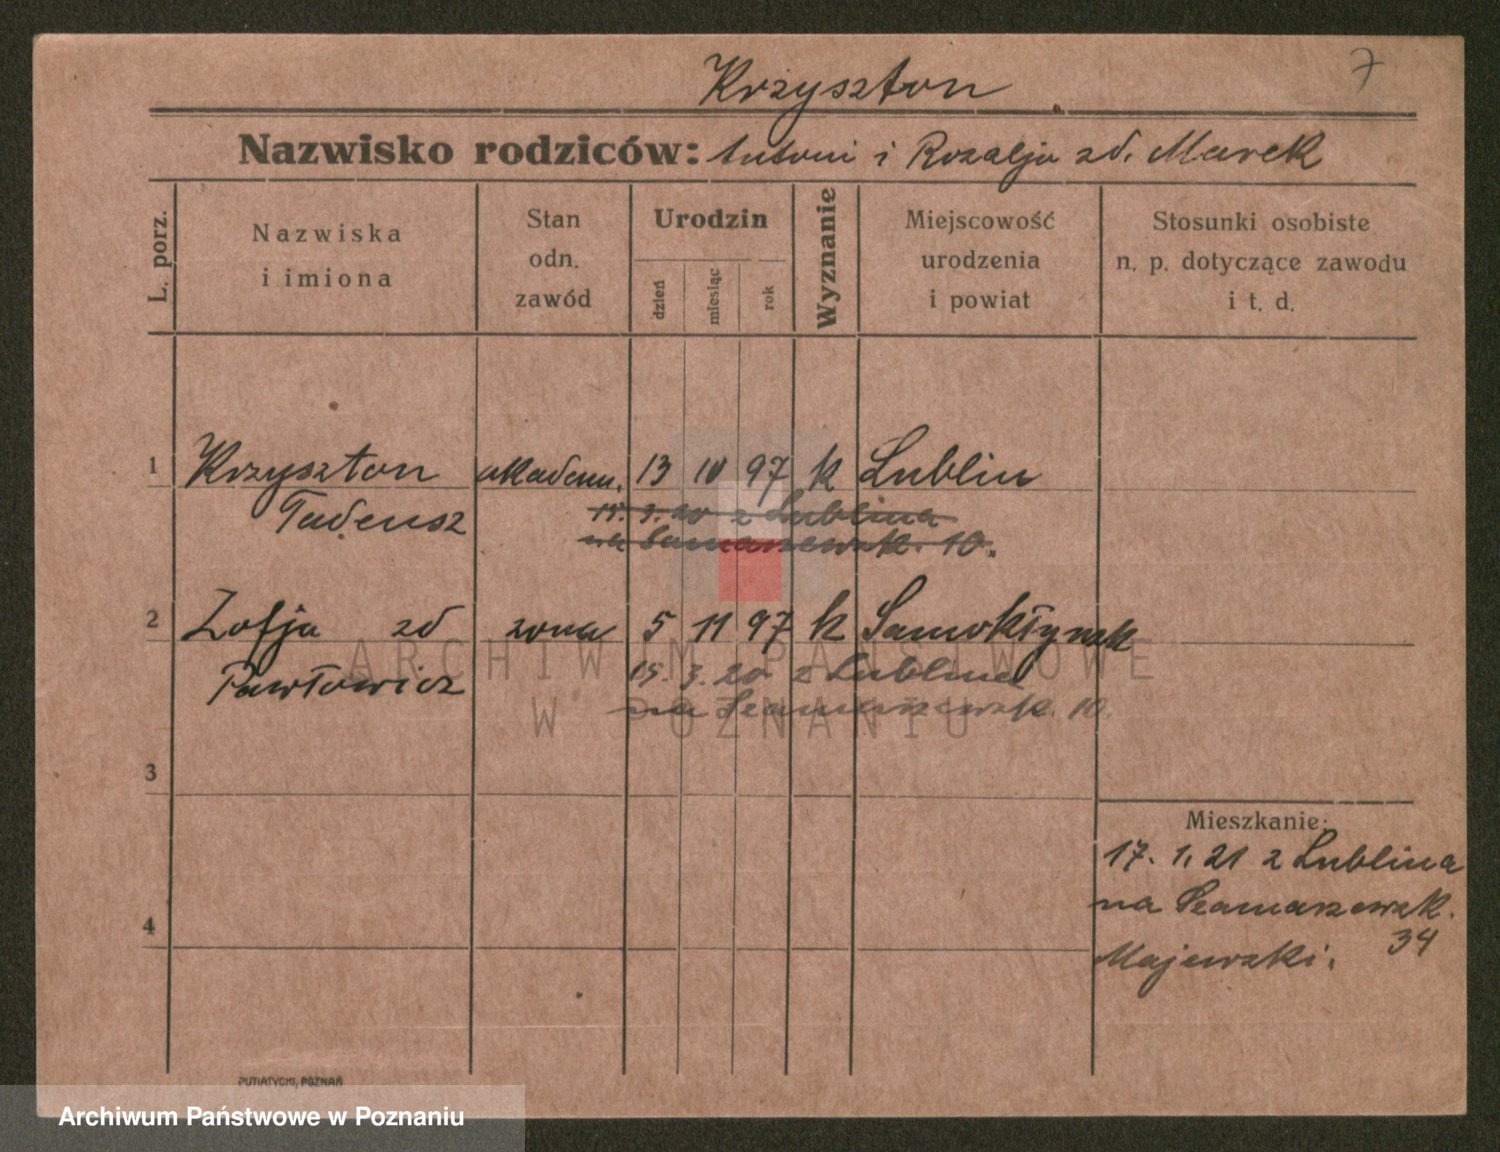 Krzyszton
7
Nazwisko rodziców: Antoni i Rozalja zd. Marek
L. porz.
Nazwiska
i imiona
Stan
odn.
zawód
Urodzin
dzień
miesiąc
rok
Wyznanie
Miejscowość
urodzenia
i powiat
Stosunki osobiste
n. p. dotyczące zawodu
i t. d.
1 Krzyszton akadem. 13 10 97 k Lublin
Tadeusz 15. 3. 20 z Lublina
na Szamarzewsk. 10.
2 Zofja zd żona 5 11 97 k Samoktęnsk
Pawłowicz 15. 3. 20 z Lublina
na Szamarzewsk. 10.
3
Mieszkanie:
17. 1. 21 z Lublina
na Szamarzewsk.
34
4
Majewski.
PUTIATYCKI, POZNAŃ
ARCHIWUM PAŃSTWOWE
W POZNANIU
Archiwum Państwowe w Poznaniu